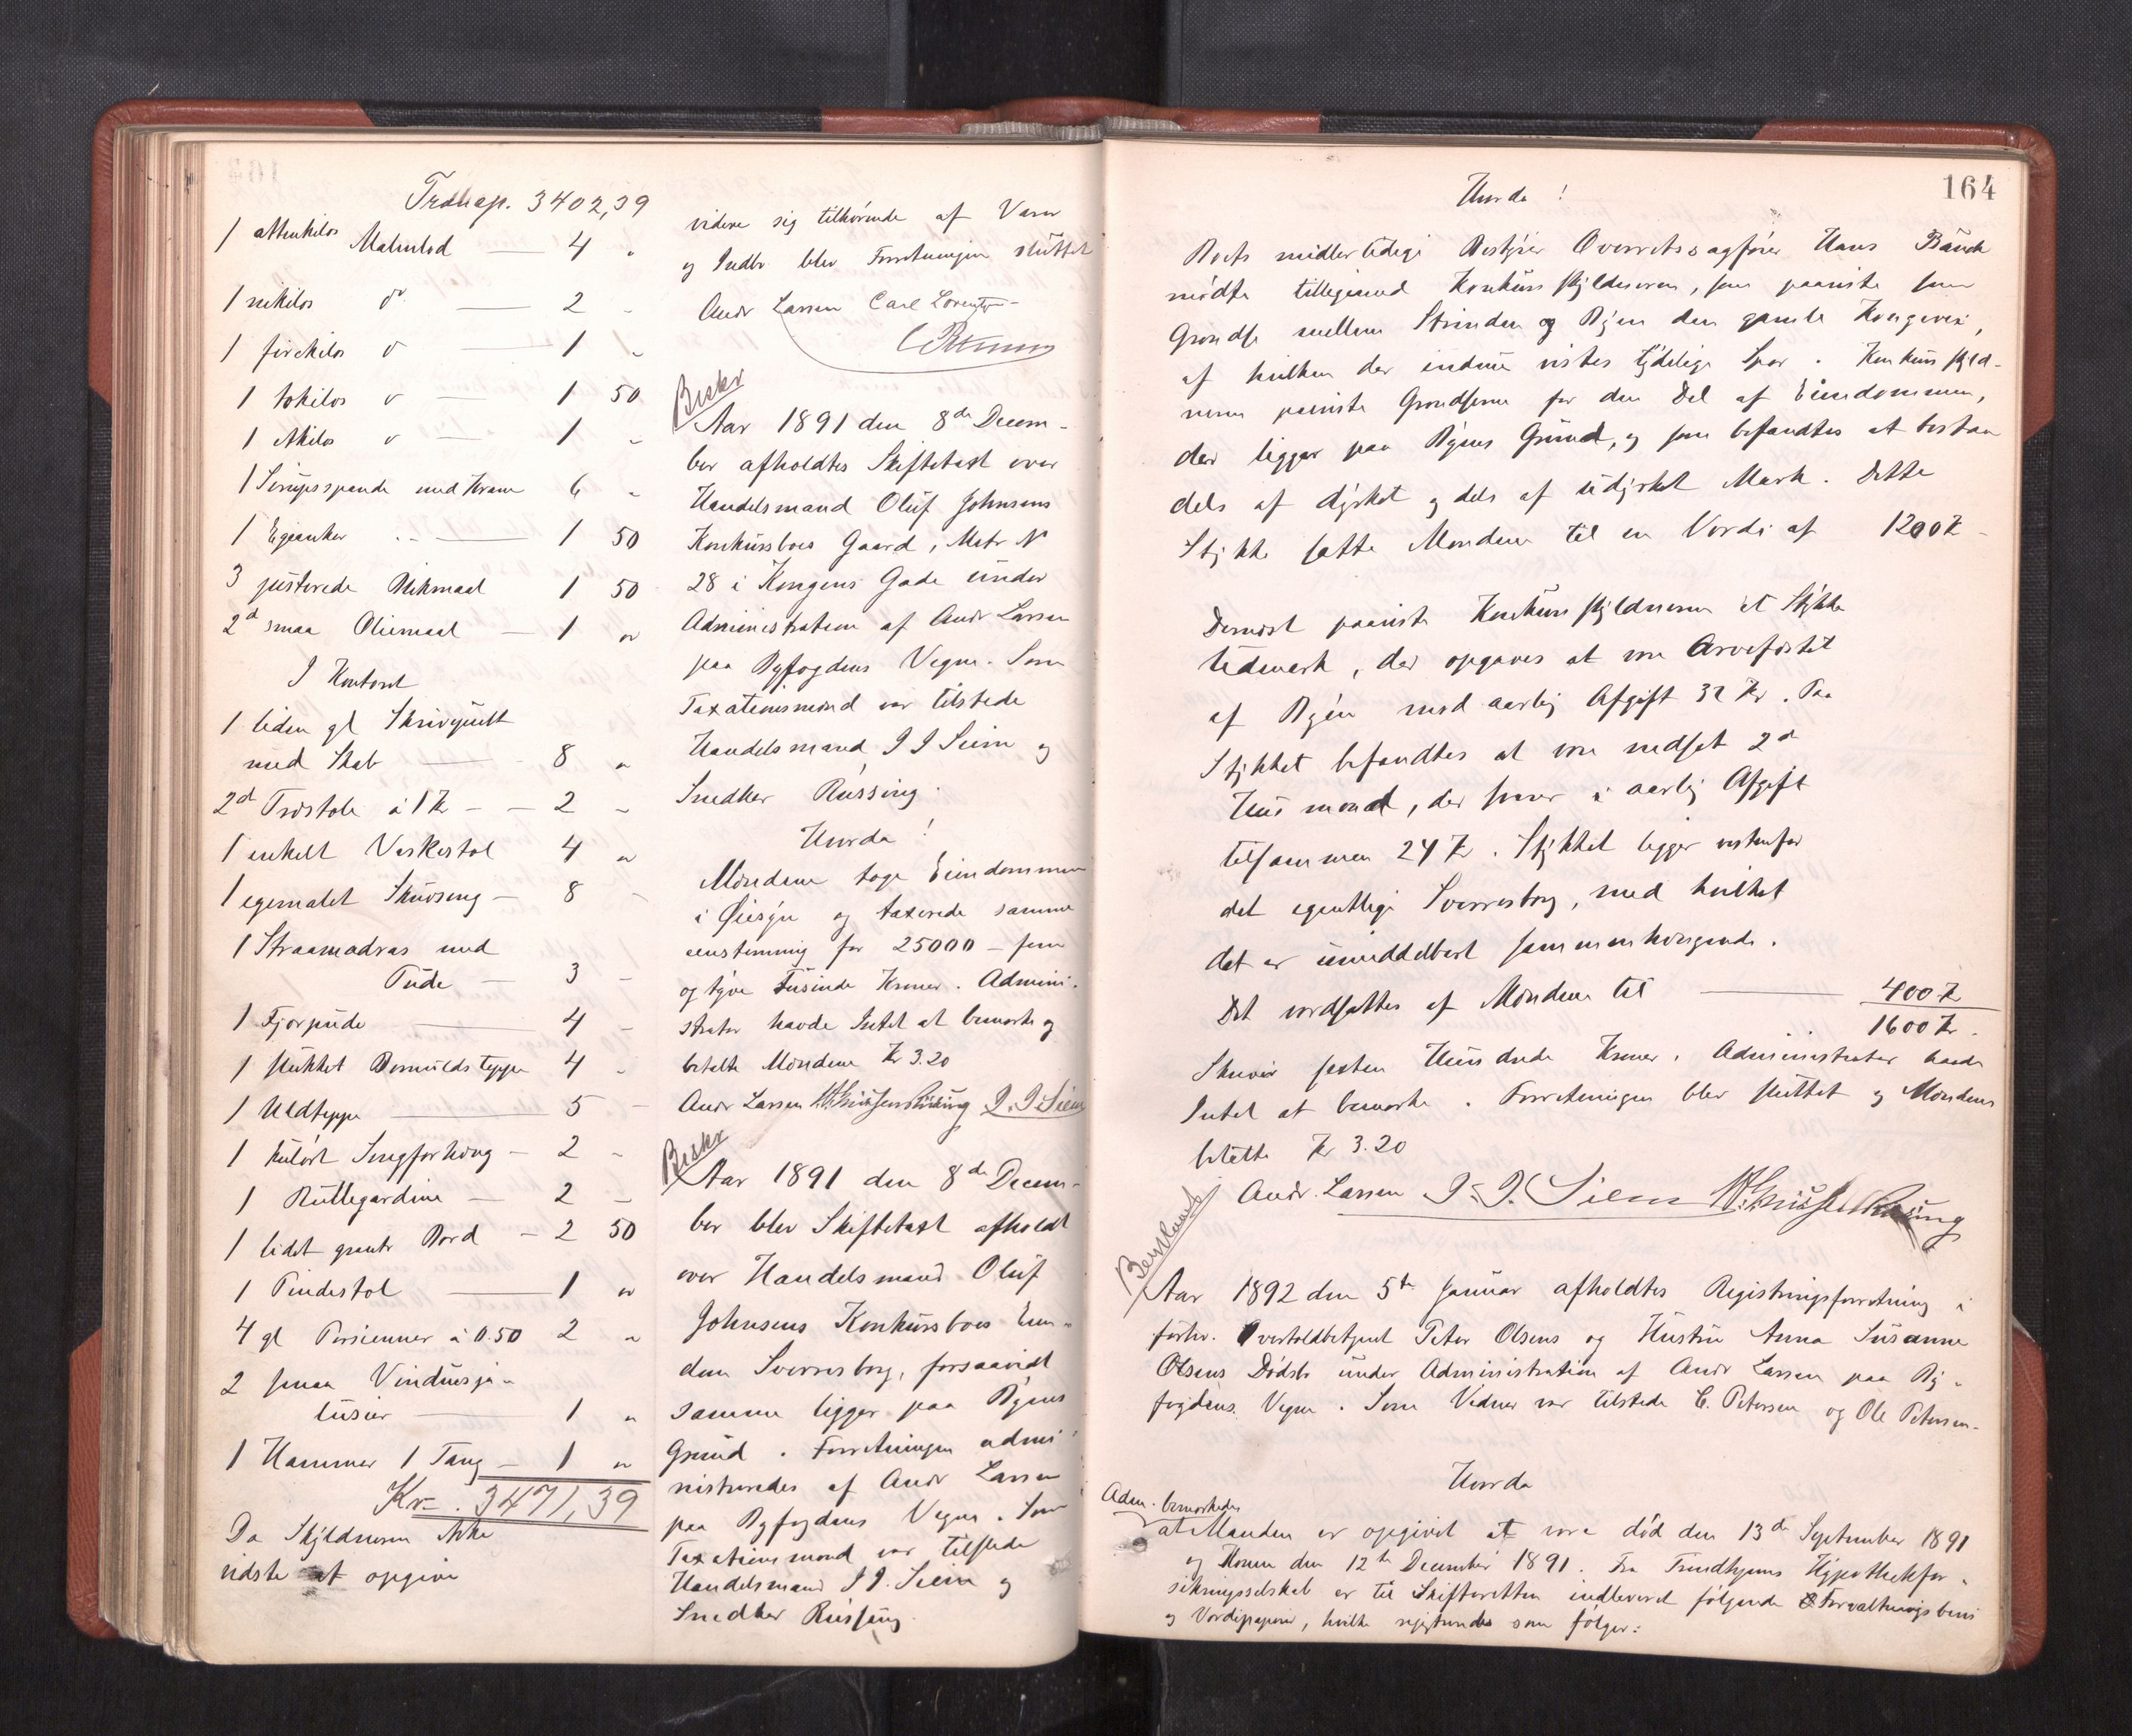 Transp. 3402,39
1 ottekilos Malmlod — 4 "
1 sekskilos do — 2 "
1 firekilos do — 1 "
1 tokilos do — 1 50
1 etkilos do — 1 "
1 Sirupsspande med Krane 6 "
1 Egeanker — 1 50
3 justerede Blikmaal 1 50
2d smaa Oliemaal — 1 "
I Kontoret
1 liden gl Skrivepult
med Skab — 8 "
2d Træstole à 1 Kr — 2 "
1 enkelt Vaskestol 4 "
1 egemalet Skuvseng — 8 "
1 Straamadras med
Pude — 3 "
1 Fjærpude — 4 "
1 stukket Bomulds teppe 4 "
1 Uldteppe — 5 "
1 kulørt Sengforhæng — 2 "
1 Rullegardine — 2 "
1 lidet Bord — 2 50
1 Pindestol — 1 "
4 gl Persienner à 0.50 2 "
2 smaa Vinduesja-
lusier — 1 "
1 Hammer 1 Tang — 1 "
Kr. 3471,39
Da Skyldneren ikke
vidste at opgive
videre sig tilhørende af Varer
og Indbo blev Forretningen sluttet
Andr Larssen Carl Lorentzen
Beskr
Aar 1891 den 8de Decem-
ber afholdtes Skiftetaxt over
Handelsmand Oluf Johnsens
Konkursboes Gaard, Matr No
28 i Kongens Gade under
Administration af Andr Larssen
paa Byfogdens Vegne. Som
Taxationsmænd var tilstede
Handelsmand I I Siem og
Snedker Russing.
Hvorda!
Mændene toge Eiendommen
i Øiesyn og taxerede samme
eenstemmig for 25000 — fem
og tyve Tusinde Kroner. Admini-
strator havde Intet at bemærke og
betalte Mændene Kr 3.20
Andr Larssen I. I. Siem
Beskr
Aar 1891 den 8de Decem-
ber blev Skiftetaxt afholdt
over Handelsmand Oluf
Johnsens Konkursboes Eien-
dom Sverresborg, forsaavidt
samme ligger paa Byens
Grund. Forretningen admi-
nistreredes af Andr Larssen
paa Byfogdens Vegne. Som
Taxationsmænd var tilstede
Handelsmand I I. Siem og
Snedker Russing.
164
Hvorda!
Boets midlertidige Bestyrer Overretssagfører Hans Bauck
mødte tilligemed Konkursskyldneren, som paaviste som
Grændse mellem Strinden og Byen den gamle Kongevei,
af hvilken der endnu vistes tydelige Spor. Konkursskyld-
neren paaviste Grændserne for den Del af Eiendommen,
der ligger paa Byens Grund, og som befandtes at bestaa
dels af dyrket og dels af udyrket Mark. Dette
Stykke satte Mændene til en Værdi af 1200 Kr
Dernæst paaviste Konkursskyldneren et Stykke
Udmark, der opgaves at være Arvefæstet
af Byen med aarlig Afgift 32 Kr. Paa
Stykket befandtes at være nedsat 2d
Husmænd, der svarer i aarlig Afgift
tilsammen 24 Kr. Stykket ligger vestenfor
det egentlige Sverresborg, med hvilket
det er umiddelbart sammenhængende.
Det værdsattes af Mændene til — 400 Kr
1600 Kr.
Skriver sexten Hundrede Kroner. Administrator havde
Intet at bemærke. Forretningen blev sluttet og Mændene
betalte Kr 3.20
Andr. Larssen I. I. Siem
Aar 1892 den 5te Januar afholdtes Registringsforretning i
forhv. Overtoldbetjent Peter Olsens og Hustru Anna Susanne
Olsens Dødsbo under Administration af Andr Larssen paa By-
fogdens Vegne. Som Vidner var tilstede C. Petersen og Ole Petersen.
Hvorda
Adm. bemærkede
at Manden er opgivet at være død den 13de September 1891
og Konen den 12te December 1891. Fra Trondhjems Hypothekfor-
sikringsselskab er til Skifteretten indleveret følgende Forvaltningsbevis
og Værdipapirer, hvilke registreredes som følger: